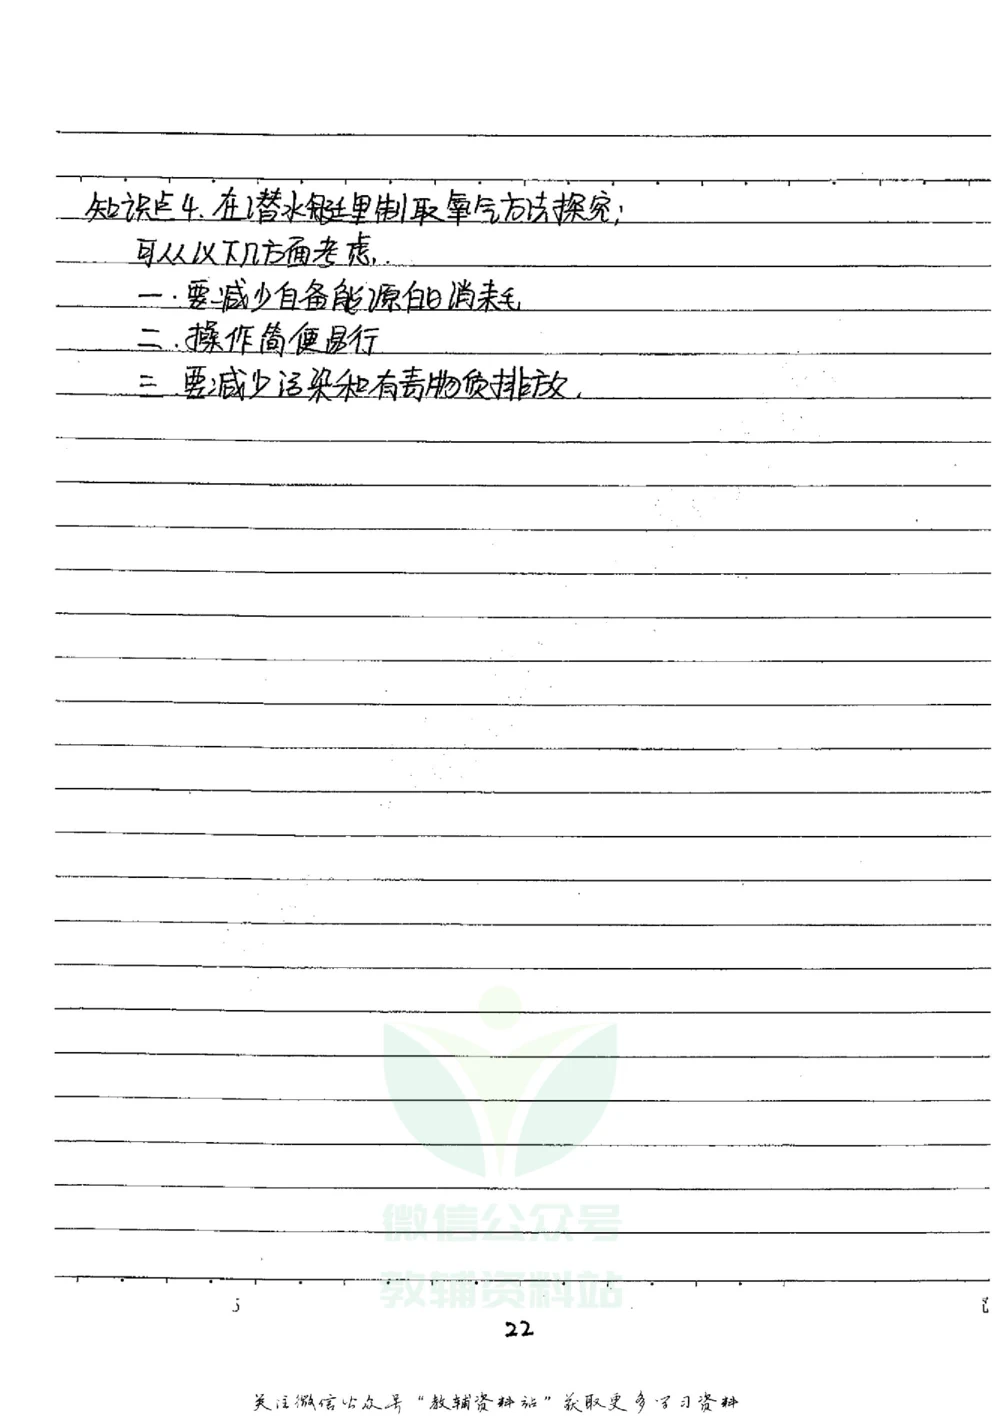 知识点4.在潜水艇里制取氧气方法探究;
可从以下几方面考虑.
一.要减少自备能源的消耗
二.操作简便易行
三.要减少污染和有毒物质排放.
微信公众号
教辅资料站
5
22
关注微信公众号“教辅资料站”获取更多学习资料